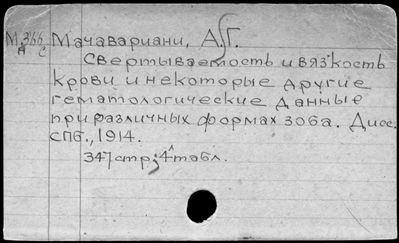 М 366 Мачавариани, А.Г.
А С
Свертываемость и вязкость
крови и некоторые другие
гематологические данные
при различных формах зоба. Дисс.
СПб., 1914.
347 стр; 4 табл.